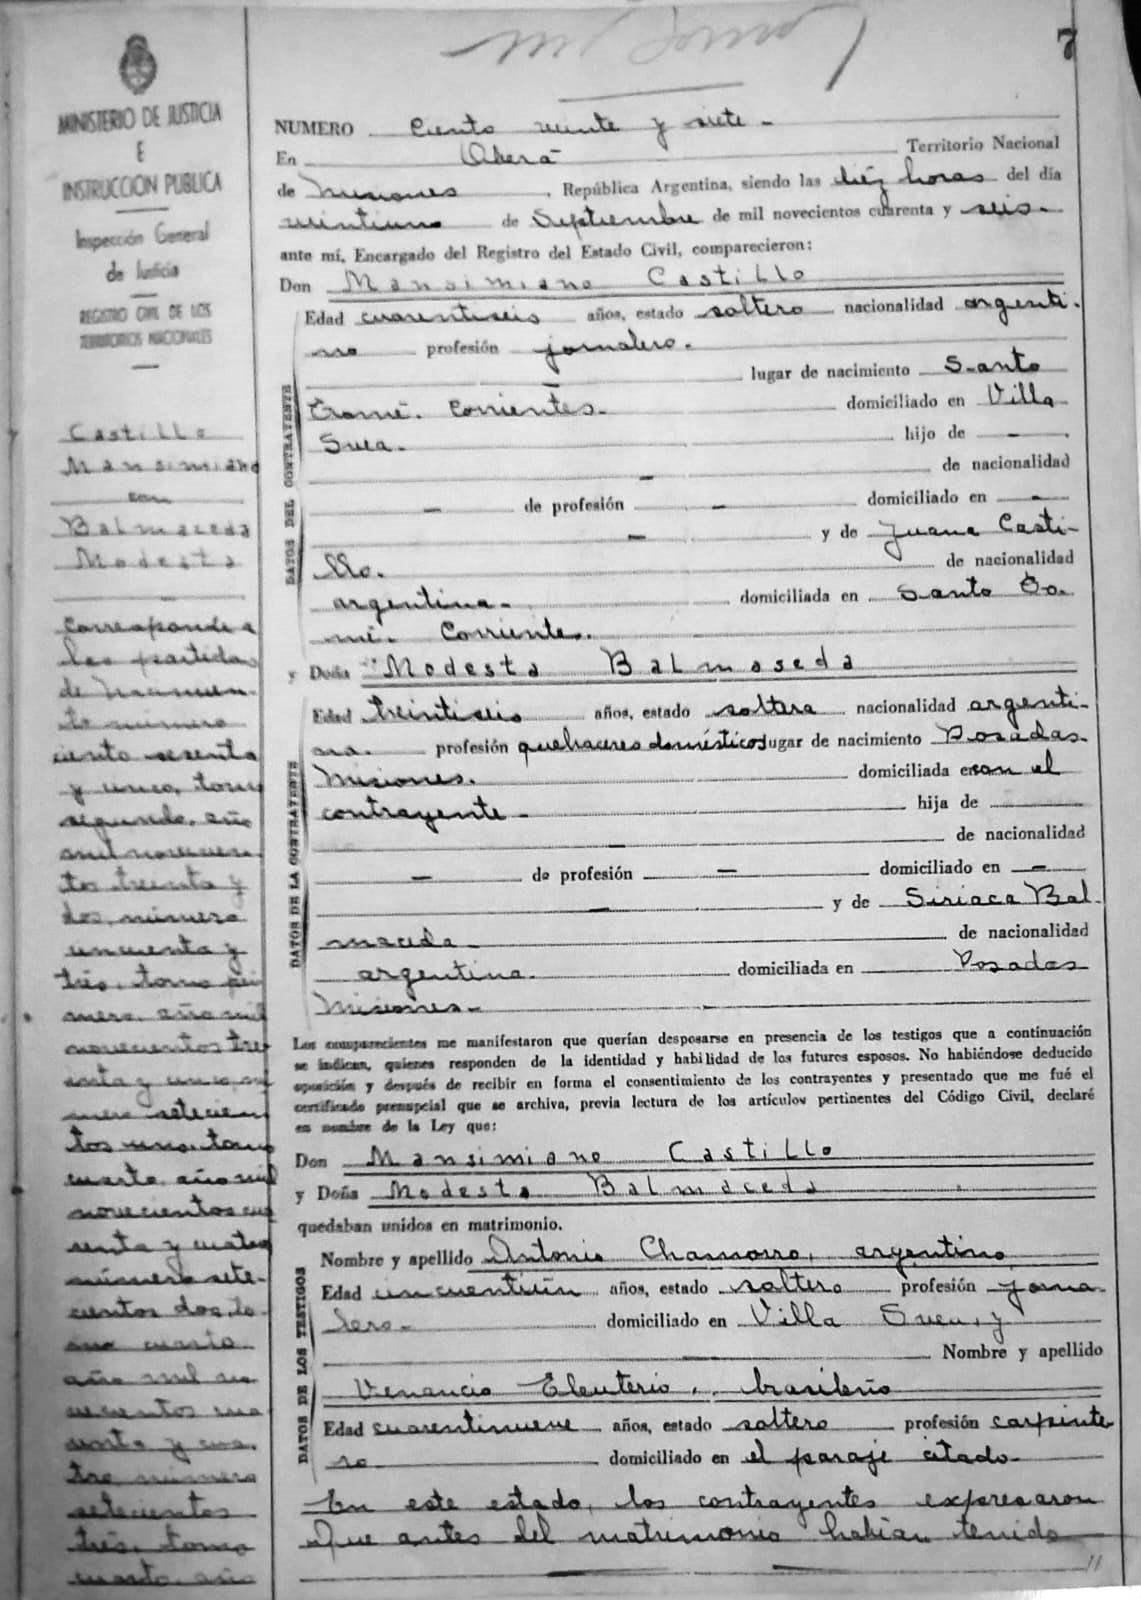 7
MINISTERIO DE JUSTICIA
E
INSTRUCCION PUBLICA
Inspección General
de Justicia
REGISTRO CIVIL DE LOS
TERRITORIOS NACIONALES
Castillo
Mansimiano
con
Balmaceda
Modesta
Corresponde a
las partidas
de nacimien-
to número
ciento sesenta
y cinco, tomo
segundo, año
mil novecien-
tos treinta y
dos, número
cincuenta y
trés, tomo pri
mero, año mil
novecientos tre
inta y cinco, nú
mero setecien
tos uno, tomo
cuarto, año mil
novecientos cua
renta y cuatro
número sete-
cientos dos, to-
mo cuarto
año mil no
vecientos cua
renta y cua-
tro, número
setecientos
trés, tomo
cuarto, año
NUMERO Ciento veinte y siete -
En Oberá Territorio Nacional
de Misiones, República Argentina, siendo las diéz horas del día
veintiuno de Septiembre de mil novecientos cuarenta y seis.
ante mí, Encargado del Registro del Estado Civil, comparecieron:
Don Mansimiano Castillo
DATOS DEL CONTRAYENTE
Edad cuarentiseis años, estado soltero nacionalidad argenti-
no profesión jornalero.
lugar de nacimiento Santo
Tomé. Corrientes. domiciliado en Villa
Svea. hijo de -
- de nacionalidad
- de profesión - domiciliado en -
- y de Juana Casti-
llo. de nacionalidad
argentina. domiciliada en Santo To-
mé. Corrientes.
y Doña Modesta Balmaseda
DATOS DE LA CONTRAYENTE
Edad treintiseis años, estado soltera nacionalidad argenti-
na. profesión quehaceres domésticos lugar de nacimiento Posadas
Misiones. domiciliada en con el
contrayente - hija de
- de nacionalidad
- de profesión - domiciliado en -
- y de Siriaca Bal-
maceda - de nacionalidad
argentina. domiciliada en Posadas
Misiones.-
Los comparecientes me manifestaron que querían desposarse en presencia de los testigos que a continuación
se indican, quienes responden de la identidad y habilidad de los futures esposos. No habiéndose deducido
oposición y después de recibir en forma el consentimiento de los contrayentes y presentado que me fué el
certificado prenupcial que se archiva, previa lectura de los artículos pertinentes del Código Civil, declaré
en nombre de la Ley que:
Don Mansimiano Castillo
y Doña Modesta Balmaceda
quedaban unidos en matrimonio.
DATOS DE LOS TESTIGOS
Nombre y apellido Antonio Chamorro, argentino
Edad cincuentiún años, estado soltero profesión jorna-
lero- domiciliado en Villa Svea, y
- Nombre y apellido
Venancio Eleuterio, brasileño
Edad cuarentinueve años, estado soltero profesión carpinte
ro domiciliado en el paraje citado-
En este estado, los contrayentes expresaron
Que antes del matrimonio habian tenido